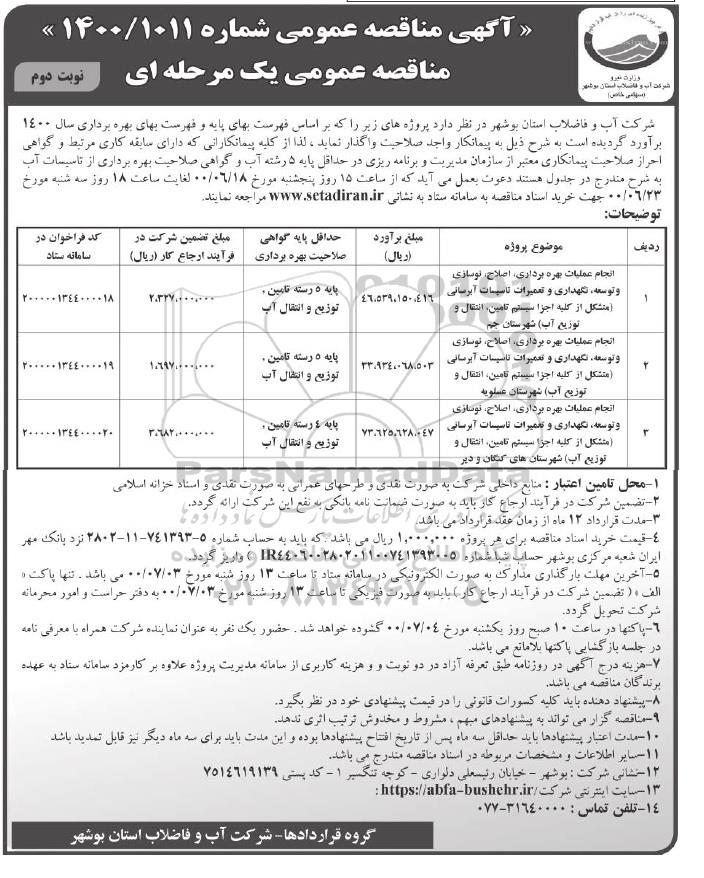 « آگهی مناقصه عمومی شماره ۱۴۰۰/۱۰۱۱ »
مناقصه عمومی یک مرحله ای
نوبت دوم
وزارت نیرو
شرکت آب و فاضلاب استان بوشهر
(سهامی خاص)
شرکت آب و فاضلاب استان بوشهر در نظر دارد پروژه های زیر را که بر اساس فهرست بهای پایه و فهرست بهای بهره برداری سال ۱۴۰۰
برآورد گردیده است به شرح ذیل به پیمانکار واجد صلاحیت واگذار نماید ، لذا از کلیه پیمانکارانی که دارای سابقه کاری مرتبط و گواهی
احراز صلاحیت پیمانکاری معتبر از سازمان مدیریت و برنامه ریزی در حداقل پایه ۵ رشته آب و گواهی صلاحیت بهره برداری از تاسیسات آب
به شرح مندرج در جدول هستند دعوت بعمل می آید که از ساعت ۱۵ روز پنجشنبه مورخ ۰۰/۰۶/۱۸ لغایت ساعت ۱۸ روز سه شنبه مورخ
۰۰/۰۶/۲۳ جهت خرید اسناد مناقصه به سامانه ستاد به نشانی www.setadiran.ir مراجعه نمایند.
توضیحات:
ردیف موضوع پروژه مبلغ برآورد (ریال) حداقل پایه گواهی صلاحیت بهره برداری مبلغ تضمین شرکت در فرآیند ارجاع کار (ریال) کد فراخوان در سامانه ستاد
۱ انجام عملیات بهره برداری، اصلاح، نوسازی وتوسعه، نگهداری و تعمیرات تاسیسات آبرسانی (متشکل از کلیه اجزا سیستم تامین، انتقال و توزیع آب) شهرستان جم ۴۶.۵۳۹.۱۵۰.۴۱۶ پایه ۵ رسته تامین , توزیع و انتقال آب ۲.۳۲۷.۰۰۰.۰۰۰ ۲۰۰۰۰۰۱۳۴۴۰۰۰۰۱۸
۲ انجام عملیات بهره برداری، اصلاح، نوسازی وتوسعه، نگهداری و تعمیرات تاسیسات آبرسانی (متشکل از کلیه اجزا سیستم تامین، انتقال و توزیع آب) شهرستان عسلویه ۳۳.۹۳۴.۰۶۸.۵۰۳ پایه ۵ رسته تامین , توزیع و انتقال آب ۱.۶۹۷.۰۰۰.۰۰۰ ۲۰۰۰۰۰۱۳۴۴۰۰۰۰۱۹
۳ انجام عملیات بهره برداری، اصلاح، نوسازی وتوسعه، نگهداری و تعمیرات تاسیسات آبرسانی (متشکل از کلیه اجزا سیستم تامین، انتقال و توزیع آب) شهرستان های کنگان و دیر ۷۳.۶۲۵.۶۲۸.۰۴۷ پایه ۴ رسته تامین , توزیع و انتقال آب ۳.۶۸۲.۰۰۰.۰۰۰ ۲۰۰۰۰۰۱۳۴۴۰۰۰۰۲۰
۱-محل تامین اعتبار : منابع داخلی شرکت به صورت نقدی و طرحهای عمرانی به صورت نقدی و اسناد خزانه اسلامی
۲-تضمین شرکت در فرآیند ارجاع کار باید به صورت ضمانت نامه بانکی به نفع این شرکت ارائه گردد.
۳-مدت قرارداد ۱۲ ماه از زمان عقد قرارداد می باشد.
۴-قیمت خرید اسناد مناقصه برای هر پروژه ۱,۰۰۰,۰۰۰ ریال می باشد .که باید به حساب شماره ۵-۷۴۱۳۹۳-۱۱-۲۸۰۲ نزد بانک مهر
ایران شعبه مرکزی بوشهر حساب شبا شماره ( IR۴۴۰۶۰۰۲۸۰۲۰۱۱۰۰۷۴۱۳۹۳۰۰۵ ) واریز گردد.
۵-آخرین مهلت بارگذاری مدارک به صورت الکترونیکی در سامانه ستاد تا ساعت ۱۳ روز شنبه مورخ ۰۰/۰۷/۰۳ می باشد . تنها پاکت «
الف » ( تضمین شرکت در فرآیند ارجاع کار ) باید به صورت فیزیکی تا ساعت ۱۳ روز شنبه مورخ ۰۰/۰۷/۰۳ به دفتر حراست و امور محرمانه
شرکت تحویل گردد.
۶-پاکتها در ساعت ۱۰ صبح روز یکشنبه مورخ ۰۰/۰۷/۰۴ گشوده خواهد شد . حضور یک نفر به عنوان نماینده شرکت همراه با معرفی نامه
در جلسه بازگشایی پاکتها بلامانع می باشد.
۷-هزینه درج آگهی در روزنامه طبق تعرفه آزاد در دو نوبت و و هزینه کاربری از سامانه مدیریت پروژه علاوه بر کارمزد سامانه ستاد به عهده
برندگان مناقصه می باشد.
۸-پیشنهاد دهنده باید کلیه کسورات قانونی را در قیمت پیشنهادی خود در نظر بگیرد.
۹-مناقصه گزار می تواند به پیشنهادهای مبهم ، مشروط و مخدوش ترتیب اثری ندهد.
۱۰-مدت اعتبار پیشنهادها باید حداقل سه ماه پس از تاریخ افتتاح پیشنهادها بوده و این مدت باید برای سه ماه دیگر نیز قابل تمدید باشد
۱۱-سایر اطلاعات و مشخصات مربوطه در اسناد مناقصه مندرج می باشد.
۱۲-نشانی شرکت : بوشهر - خیابان رئیسعلی دلواری - کوچه تنگسیر ۱ - کد پستی ۷۵۱۴۶۱۹۱۳۹
۱۳-سایت اینترنتی شرکت/https://abfa-bushehr.ir :
۱۴-تلفن تماس : ۳۱۶۴۰۰۰۰-۰۷۷
گروه قراردادها- شرکت آب و فاضلاب استان بوشهر
ParsNamadData